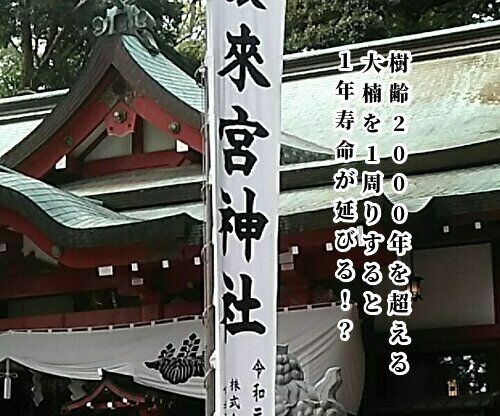 樹齢2000年を超える
大楠を1周りすると
1年寿命が延びる!?
來宮神社
令和元
株式